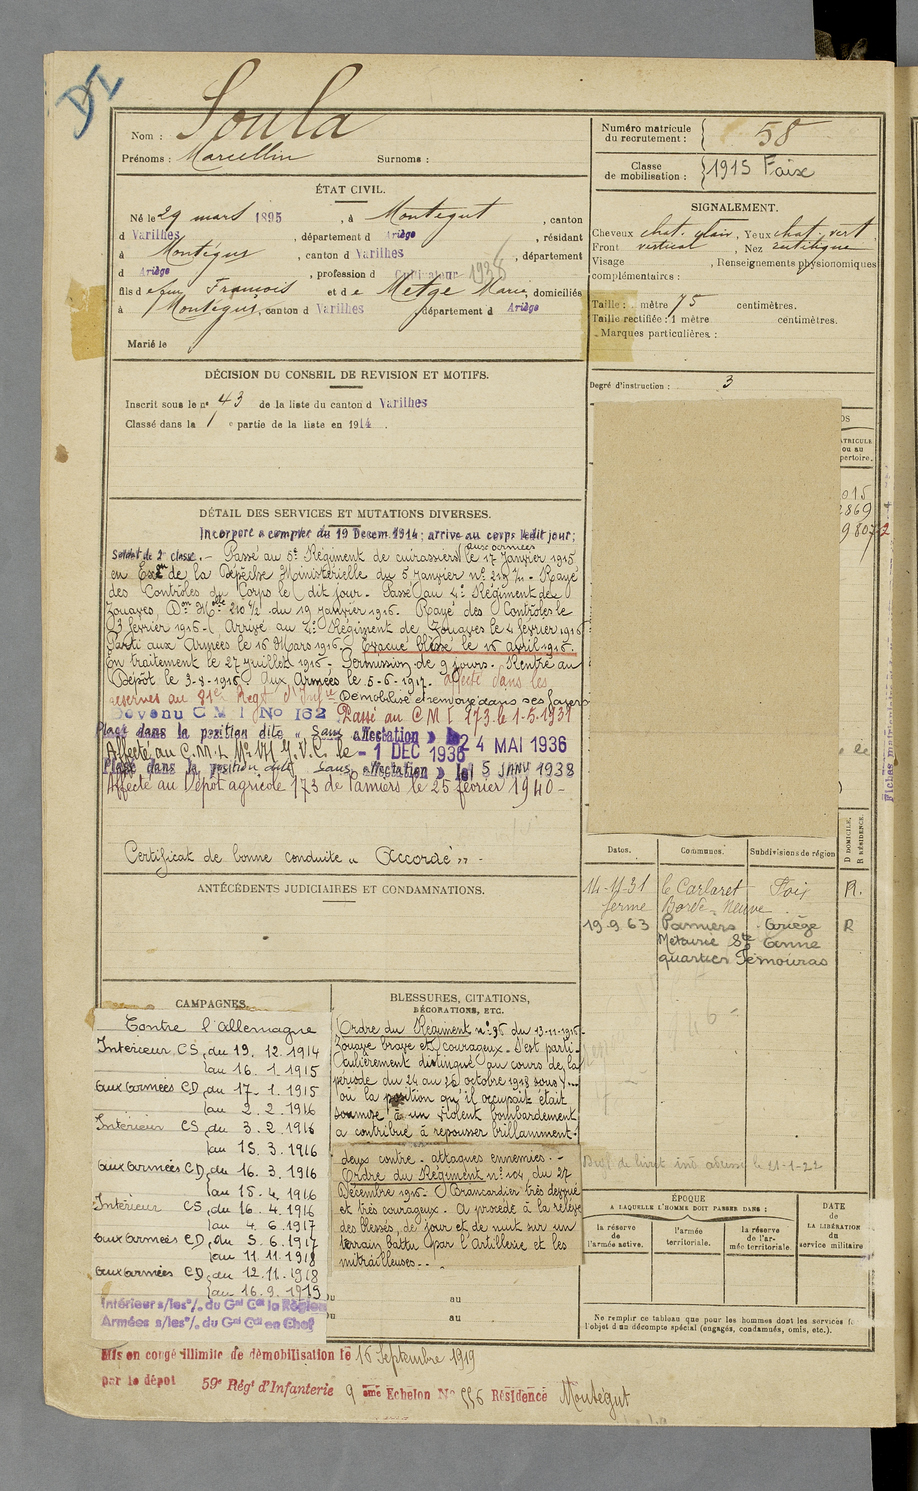 Nom : Soula
Prénoms : Marcellin Surnoms :
Numéro matricule
du recrutement : 58
Classe
de mobilisation : 1915 Foix
ÉTAT CIVIL.
Né le 29 mars 1895, à Montégut, canton
d Varilhes, département d Ariège, résidant
à Montégut, canton d Varilhes, département
d Ariège, profession d Cultivateur 1936
fils de feu François et de Metge Marie, domiciliés
à Montégut, canton d Varilhes, département d Ariège
Marié le
SIGNALEMENT.
Cheveux chat. clair, Yeux chat. vert
Front vertical, Nez rectiligne
Visage , Renseignements physionomiques
complémentaires :
Taille : mètre 75 centimètres.
Taille rectifiée : 1 mètre centimètres.
Marques particulières :
Degré d'instruction : 3
DÉCISION DU CONSEIL DE REVISION ET MOTIFS.
Inscrit sous le n° 43 de la liste du canton d Varilhes
Classé dans la 1 e partie de la liste en 1914.
DÉTAIL DES SERVICES ET MUTATIONS DIVERSES.
Incorporé à compter du 19 Décem. 1914; arrivé au corps ledit jour;
Soldat de 2e classe. - Passé au 5e Régiment de cuirassiers aux armées le 17 Janvier 1915
en Exéon de la Dépêche Ministérielle du 5 Janvier n°. - Rayé
des Contrôles du Corps le dit jour. Passé au 4e Régiment de
Zouaves, Don Mlle 230 1/2 du 19 Janvier 1916. Rayé des Contrôles le
3 février 1916 - Arrivé au 4e Régiment de Zouaves le 4 février 1916
Parti aux Armées le 16 Mars 1916. Evacué blessé le 15 avril 1916.
En traitement le 27 juillet 1916 - Permission de 9 jours. Rentré au
Dépôt le 3-8-1916. Aux Armées le 5-6-1917. Affecté dans les
réserves au 81e Régt d'Infie Démobilisé et renvoyé dans ses foyers
Devenu C M I No 162 Passé au C M I 173 le 1-5-1931
Placé dans la position dite « Sans affectation » le 24 MAI 1936
Affecté au C.M.I. N° le - 1 DEC 1936
Placé dans la position dite « Sans affectation » le 15 JANV 1938
Affecté au Dépôt agricole 173 de Pamiers le 25 février 1940 -
Certificat de bonne conduite « Accordé » -
ANTÉCÉDENTS JUDICIAIRES ET CONDAMNATIONS.
Dates. Communes. Subdivisions de région D DOMICILE, R RÉSIDENCE.
14-11-31 le Carlaret Foix R.
ferme Borde-Neuve
19.9.63 Pamiers Ariège R
Métairie Ste Anne
quartier Témouras
CAMPAGNES.
Contre l'Allemagne
Intérieur CS, du 19. 12. 1914
au 16. 1. 1915
aux Armées CD, du 17. 1. 1915
au 2. 2. 1916
Intérieur CS du 3. 2. 1916
au 15. 3. 1916
aux Armées CD, du 16. 3. 1916
au 15. 4. 1916
Intérieur CS, du 16. 4. 1916
au 4. 6. 1917
aux Armées CD, du 5. 6. 1917
au 11. 11. 1918
aux Armées CD, du 12. 11. 1918
au 16. 9. 1919
Intérieur s/les o/. du Gal Cdt la Région
Armées s/les o/. du Gal Cdt en Chef
BLESSURES, CITATIONS,
DÉCORATIONS, ETC.
Ordre du Régiment n° 96 du 13-11-1916-
Zouave brave et courageux. S'est parti-
culièrement distingué au cours de la
période du 24 au 26 octobre 1916 sous V...
où la position qu'il occupait était
soumise à un violent bombardement
a contribué à repousser brillamment
deux contre-attaques ennemies. -
Ordre du Régiment n° 104 du 27
Décembre 1916 - Brancardier très dévoué
et très courageux. A procédé à la relève
des blessés, de jour et de nuit sur un
terrain battu par l'Artillerie et les
mitrailleuses. -
au
au
ÉPOQUE
A LAQUELLE L'HOMME DOIT PASSER DANS :
la réserve
de
l'armée active.
l'armée
territoriale.
la réserve
de l'ar-
mée territoriale
DATE
de
LA LIBÉRATION
du
service militaire
Ne remplir ce tableau que pour les hommes dont les services
l'objet d'un décompte spécial (engagés, condamnés, omis, etc.).
Mis en congé illimité de démobilisation le 16 Septembre 1919
par le dépôt 59e Régt d'Infanterie 9 ème Echelon No 556 Résidence Montégut